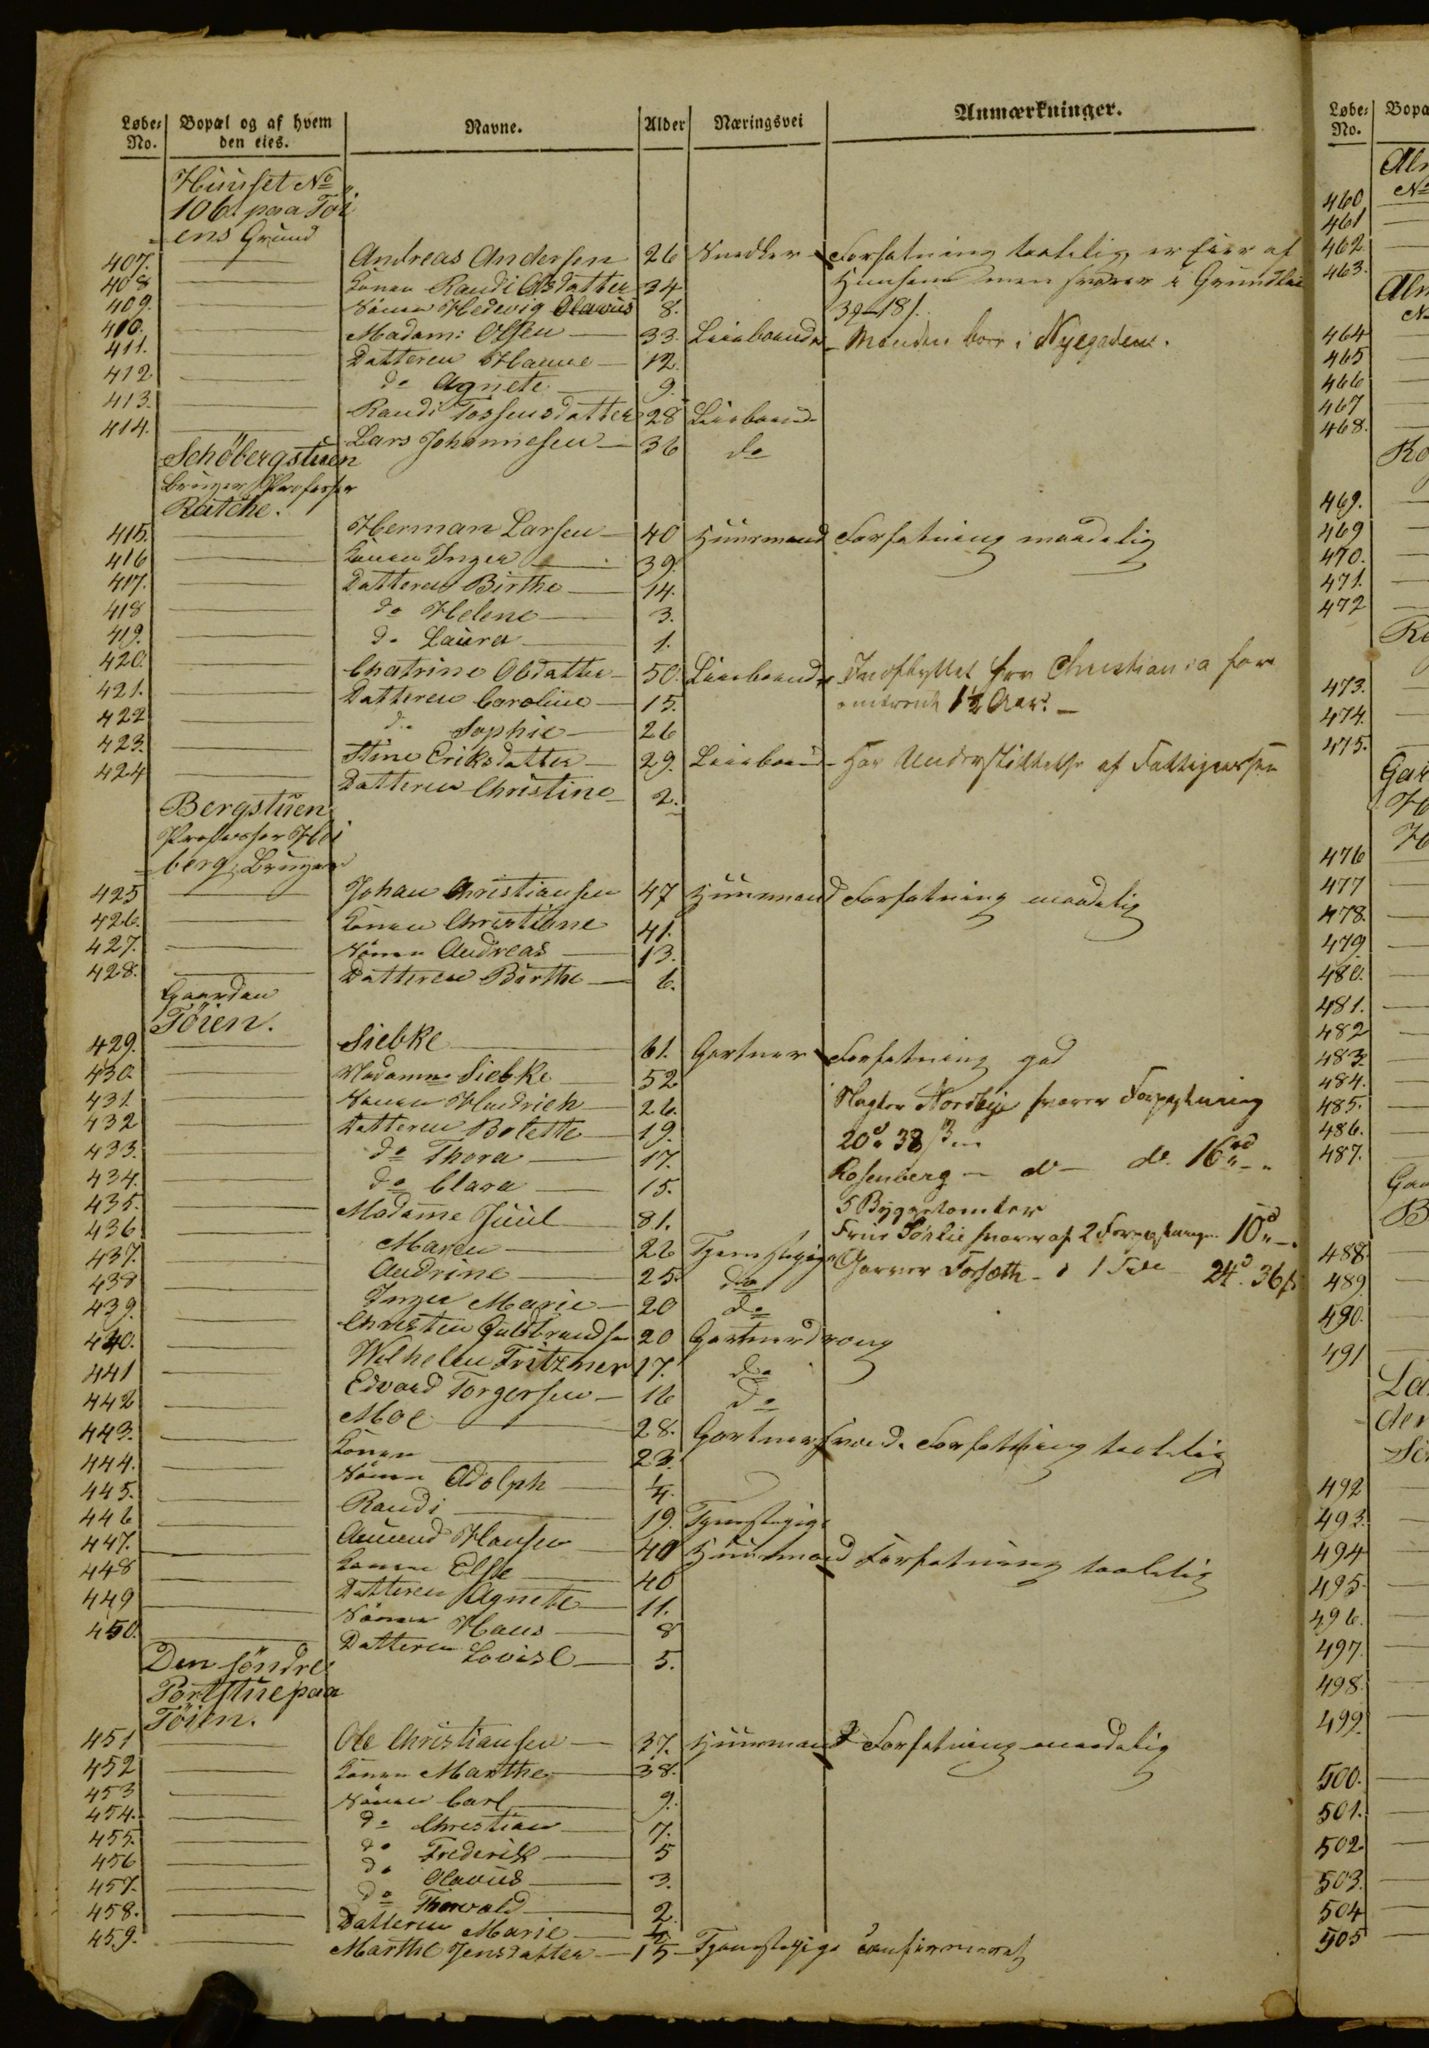 Løbe- No. Bopæl og af hvem den eies. Navne. Alder Næringsvei Anmærkninger.
Huuset No
106 paa Töi
ens Grund
407. Andreas Andersen 26 Snedker Forfatning taalelig, er Eier af
408 Konen Randi Olsdatter 34 Huusene men svarer i Grundleie
409. Sönnen Hedevig Olavius 8. 3 18
410. Madam: Olsen 33. Leieboende Manden boer i Nyegaden.
411. Datteren Hanne 12.
412 do Agnete 9.
413. Randi Tossensdatter 28 Leieboende
414. Lars Johannesen 36 do
Schöbergstuen
Bruger Professor
Ratche.
415. Herman Larsen 40 Huusmand Forfatning maadelig
416 Konen Inger 39.
417. Datteren Birthe 14.
418 do Helene 3.
419. do Laura 1.
420. Chatrine Olsdatter 50. Leieboende Indflyttet fra Christiania for
421. Datteren Caroline 15. omtrent 1½ Aar.
422 do Sophie 26
423. Stine Eriksdatter 29. Leieboend Har Understöttelse af Fattigvæsen
424 Datteren Christine 2.
Bergstuen
Professor Hei
berg, Bruger
425 Johan Christiansen 47 Huusmand Forfatning maadelig
426. Konen Christiane 41.
427. Sönnen Andreas 13.
428. Datteren Birthe 6.
Gaarden
Töien.
429. Siebke 61. Gartner Forfatning god
430. Madamme Siebke 52
431 Sönnen Hendrich 26. Slagter Nordbye svarer Forpagtning
432 Datteren Bolette 19. 20 38
433. do Thora 17. Rosenberg do 16
434. do Clara 15. 5 Byggetomter
435. Madame Juul 81. Frue svarer af 2 10
436 Maren 22 Tjenestepige Garver Forsæth 1 24. 36
437. Andrine 25 do
438 Inger Marie 20 do
439. Christen Guldbrandsen 20 Gartnerdreng
440. Wilhelm Fritzner 17. do
441 Edvard Torgersen 16 do
442 Moe 28. Gartnersvend. Forfatning taalelig
443. Konen 23.
444. Sönnen Adolph ¼.
445. Randi 19. Tjenestepige
446 Amund Hansen 40 Huusmand Forfatning taalelig
447. Konen Else 40
448 Datteren Agnete 11.
449 Sönnen Hans 8
450. Datteren Lovise 5.
Den söndre
Portstue paa
Töien.
451 Ole Christiansen 37. Huusmand Forfatning maadelig
452 Konen Marthe 38.
453 Sönnen Carl 9.
454. do Christian 7.
455. do Frederik 5
456 do Olavus 3.
457. do Thorvald 2.
458. Datteren Marie
459. Marthe Jensdatter 15 Tjenestepige confirmeret
Løbe- No. Bopæ
460
461
462
463.
464
465
466
467
468.
469.
469
470.
471.
472
473.
474.
475.
476
477
478.
479
480.
481.
482
483
484.
485.
486.
487.
488
489.
490.
491
492
493.
494
495
496.
497.
498.
499.
500.
501.
502
503.
504
505